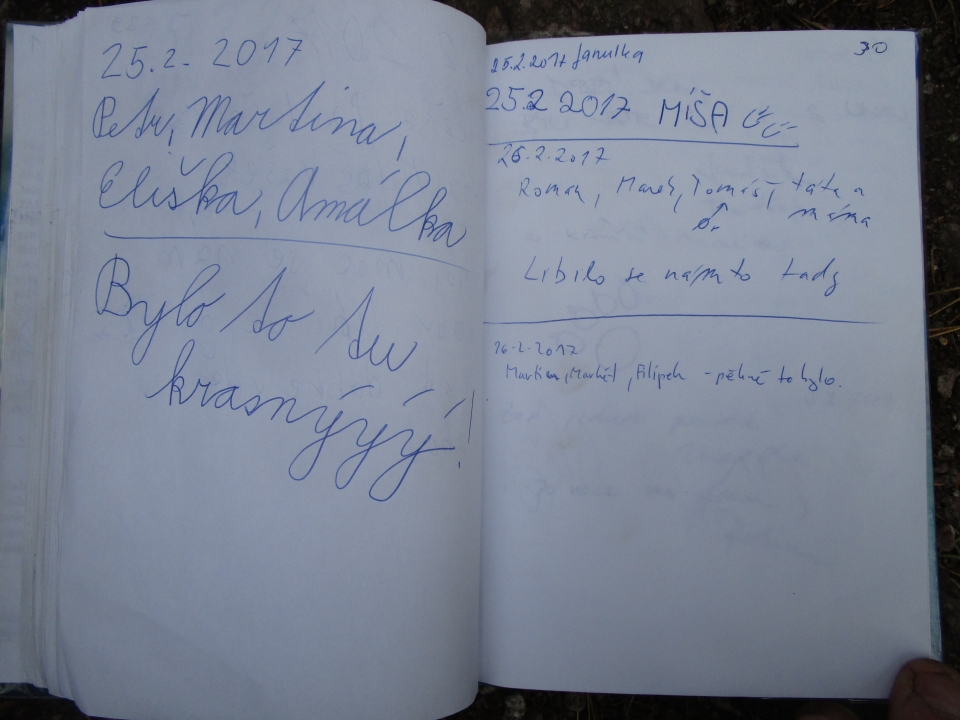 25.2. 2017
Petr, Martina,
Eliška, Amálka
Bylo to tu
krasnýýý!
30
25.2.2017 Janulka
25.2 2017 MÍŠA
26.2.2017
Roman, Marek, Tomáš, táta a
máma
Líbilo se nám to tady
26.2.2017
Martin, Markét, Filípek - pěkné to bylo.